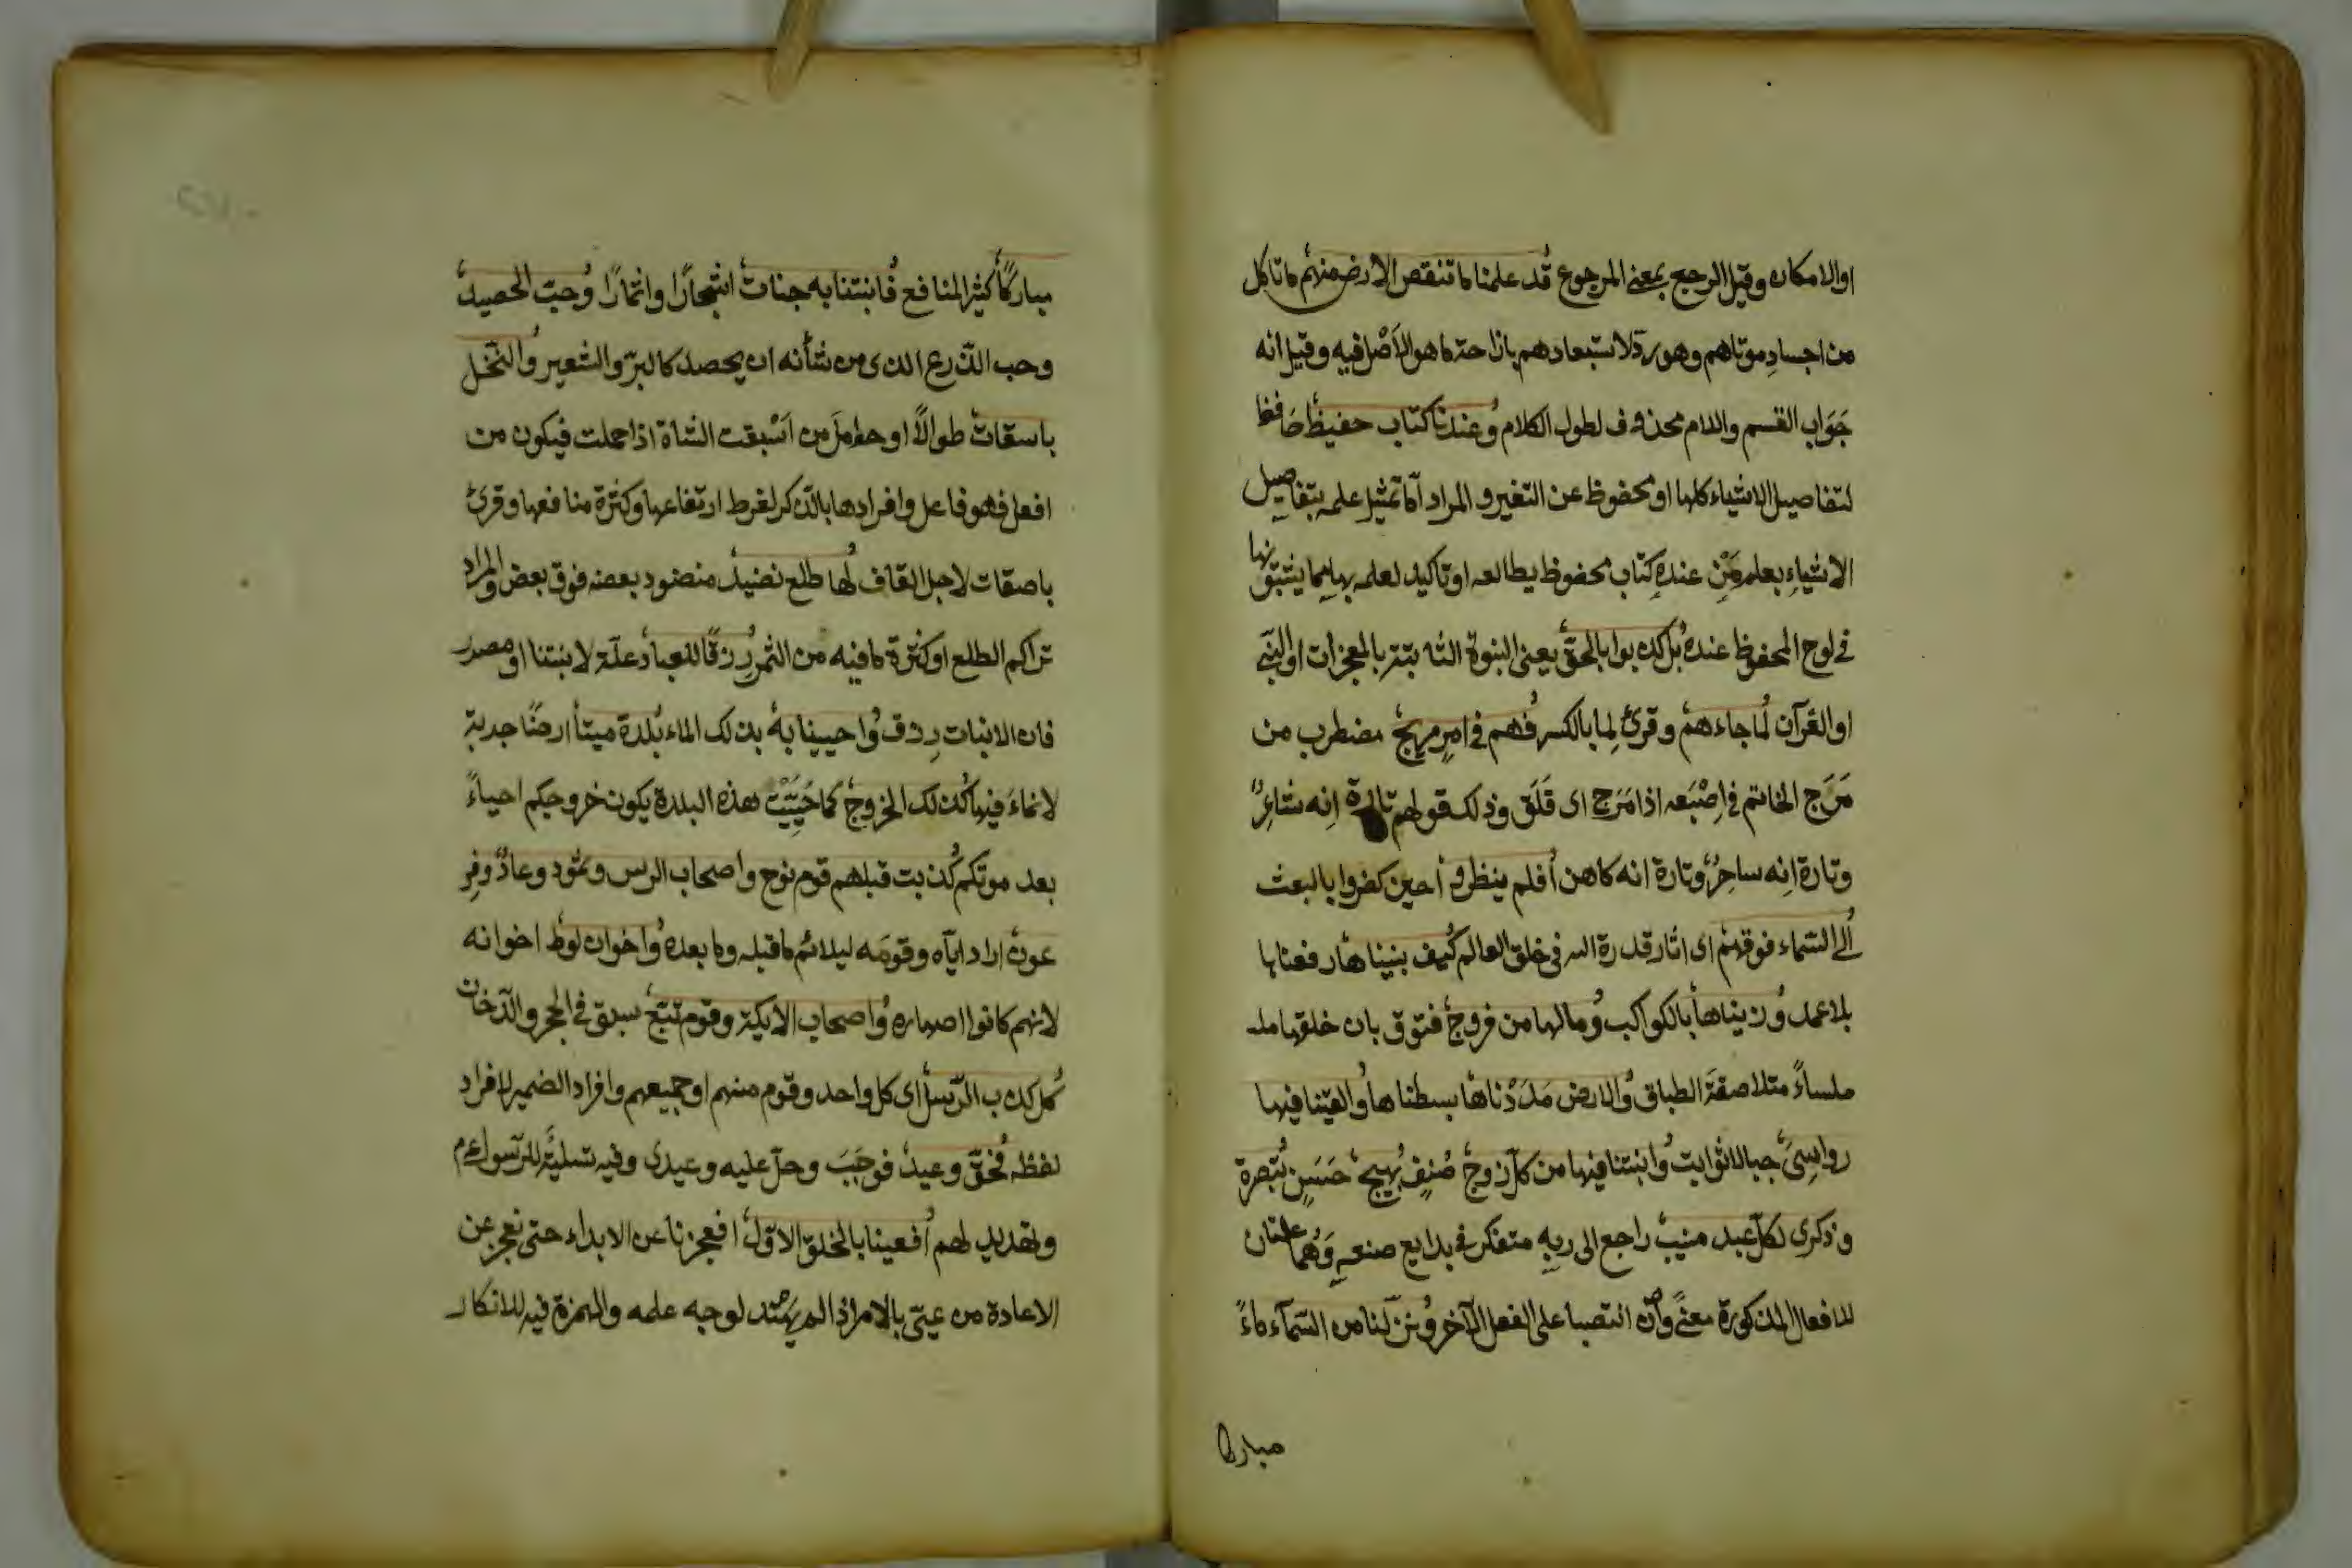 او الامكان وقيل الرجع بمعنى المرجوع قد علمنا ما تنقص الارض منهم ما تاكل
من اجسادِ موتاهم وهو ردّ لاستبعادهم بازاحة ما هو الأصْل فيه وقيل انه
جَوَاب القسم واللام محذوف لطول الكلام وعندنا كتاب حفيظ حَافظ
لتفاصيل الاشياء كلها او محفوظ عن التغير والمراد امّا تمثيل علمه بتفاصيل
الاشياءِ بعلم مَنْ عندهِ كتاب محفوظ يطالعه او تاكيد لعلمه بها
في لوح المحفوظ عنده بل كذبوا بالحقّ يعنى النبوة الثابتة بالمعجزات او النبي
او القرآن لما جاءهم وقرئ لِما بالكسر فهم في امرٍ مريج مضطرب من
مَرَج الخاتم في اِصْبَعه اذا مَرَج اى قَلَق وذلك قولهم تارة اِنه شاعِرٌ
وتارة اِنه ساحِرٌ وتارة انه كاهن أفلم ينظروا حين كفروا بالبعث
الى السّماء فوقهم اى اثار قدرة الله في خلق العالم كيف بنيناها رفعناها
بلا عمد وزيناها بالكواكب وما لها من فروج فتوق بان خلقها
ملساءً متلاصقة الطباق والارض مَدَدْناها بسطناها والقينا فيها
رواسِىَ جبالا ثوابت وانبتنا فيها من كلّ زوج صُنفٍ بهيج حَسَنٍ تبصرة
وذكرى لكلّ عبد منيب راجع الى ربهِ متفكر في بدايع صنعهِ وَهُما علتان
للافعال المذكورة معنىً وان انتصبا على الفعل الآخر ونزّلنا من السّمآء ماءً
مباركا
مباركًا كثير المنافع فانبتنا به جنات اشجارًا واثمارًا وحبّ الحصيد
وحب الزرع الذى من شأنه ان يحصد كالبرّ والشعير والنخل
باسقات طوالاً او حوامل من اَبْسقت الشاة اذا حملت فيكون من
افعل فهو فاعل وافرادها بالذكر لفرط ارتفاعها وكثرة منافعها وقرئ
باصقات لاجل القاف لها طلع نضيد منضود بعضه فوق بعض والمراد
تراكم الطلع او كثرة ما فيه من الثمر رزقًا للعباد علّة لانبتنا او مصدر
فان الانبات رِزق واحيينا به بذلك الماء بلدة ميتا ارضًا جدبة
لا نماءَ فيها كذلك الخروج كما حَيِيَتْ هذه البلدة يكون خروجكم احياءً
بعد موتكم كذبت قبلهم قوم نوح واصحاب الرس وثمود وعادٌ وفر
عون اراد اياه وقومَه ليلائم ما قبله وما بعده واخوان لوط اخوانه
لانهم كانوا اصهاره واصحاب الايكة وقوم تبّع سبق في الحجر والدّخان
كل كذب الرّسل اى كل واحد وقوم منهم او جميعهم وافراد الضمير لافراد
لفظه فحقّ وعيد فوجَبَ وحلّ عليه وعيدى وفيه تسلية للرّسول عم
وتهديد لهم أفعيينا بالخلق الاوّل افعجزنا عن الابداء حتى نعجز عن
الاعادة من عيىَ بالامر اذا لم يهتد لوجه علمه والهمزة فيه للانكار